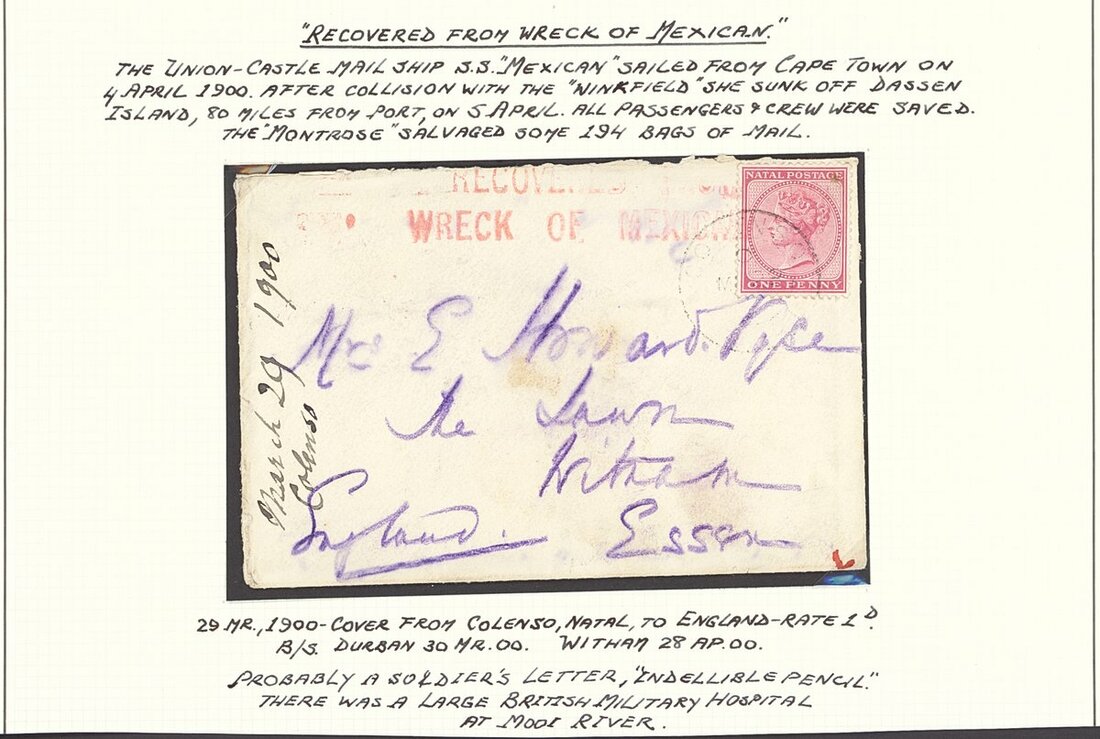 "RECOVERED FROM WRECK OF MEXICAN."
THE UNION-CASTLE MAIL SHIP S.S. "MEXICAN" SAILED FROM CAPE TOWN ON
4 APRIL 1900. AFTER COLLISION WITH THE "WINKFIELD" SHE SUNK OFF DASSEN
ISLAND, 80 MILES FROM PORT, ON 5 APRIL. ALL PASSENGERS & CREW WERE SAVED.
THE "MONTROSE" SALVAGED SOME 194 BAGS OF MAIL.
RECOVERED
WRECK OF MEXICAN
NATAL POSTAGE
ONE PENNY
March 29 1900
Colenso
Mrs E Howard
The Lawn
Witham
Essex
England.
29 MR., 1900-COVER FROM COLENSO, NATAL, TO ENGLAND-RATE 1D.
B/S. DURBAN 30 MR.00. WITHAM 28 AP.00.
PROBABLY A SOLDIER'S LETTER, "INDELLIBLE PENCIL."
THERE WAS A LARGE BRITISH MILITARY HOSPITAL
AT MOOI RIVER.